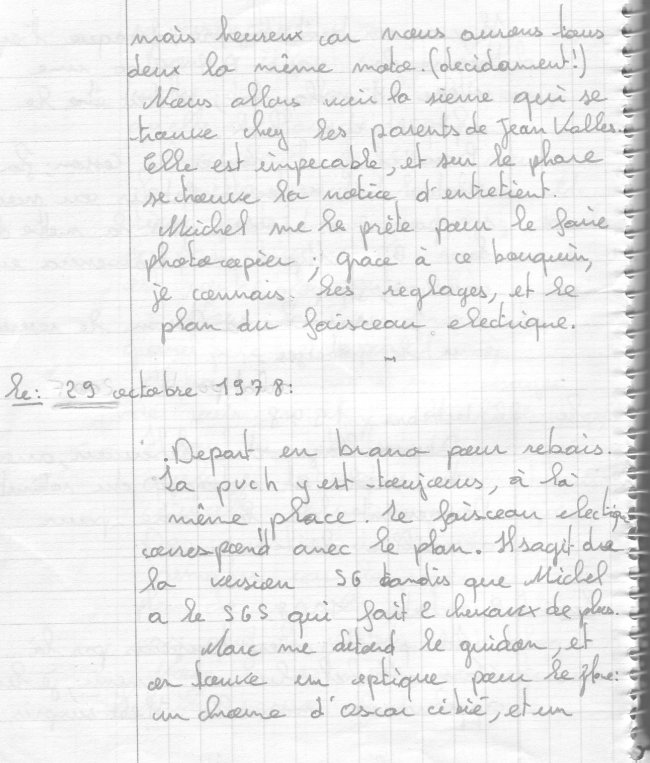 mais heureux car nous aurons tous
deux la même moto. (decidament!)
Nous allons voir la sienne qui se
trouve chez les parents de Jean Valles.
Elle est impecable, et sur le phare
se trouve la notice d'entretient.
Michel me la prête pour le faire
photocopier ; grace à ce bouquin,
je connais les reglages, et le
plan du faisceau electrique.
Le: 29 octobre 1978:
. Depart en brana pour rebais.
La puch y est toujours, à la
même place. Le faisceau electriq
correspond avec le plan. Il sagit de
la version SG tandis que Michel
a le SGS qui fait 2 chevaux de plus.
Marc me detord le guidon, et
on trouve un optique pour le phare:
un chrome d'oscar cibié, et un